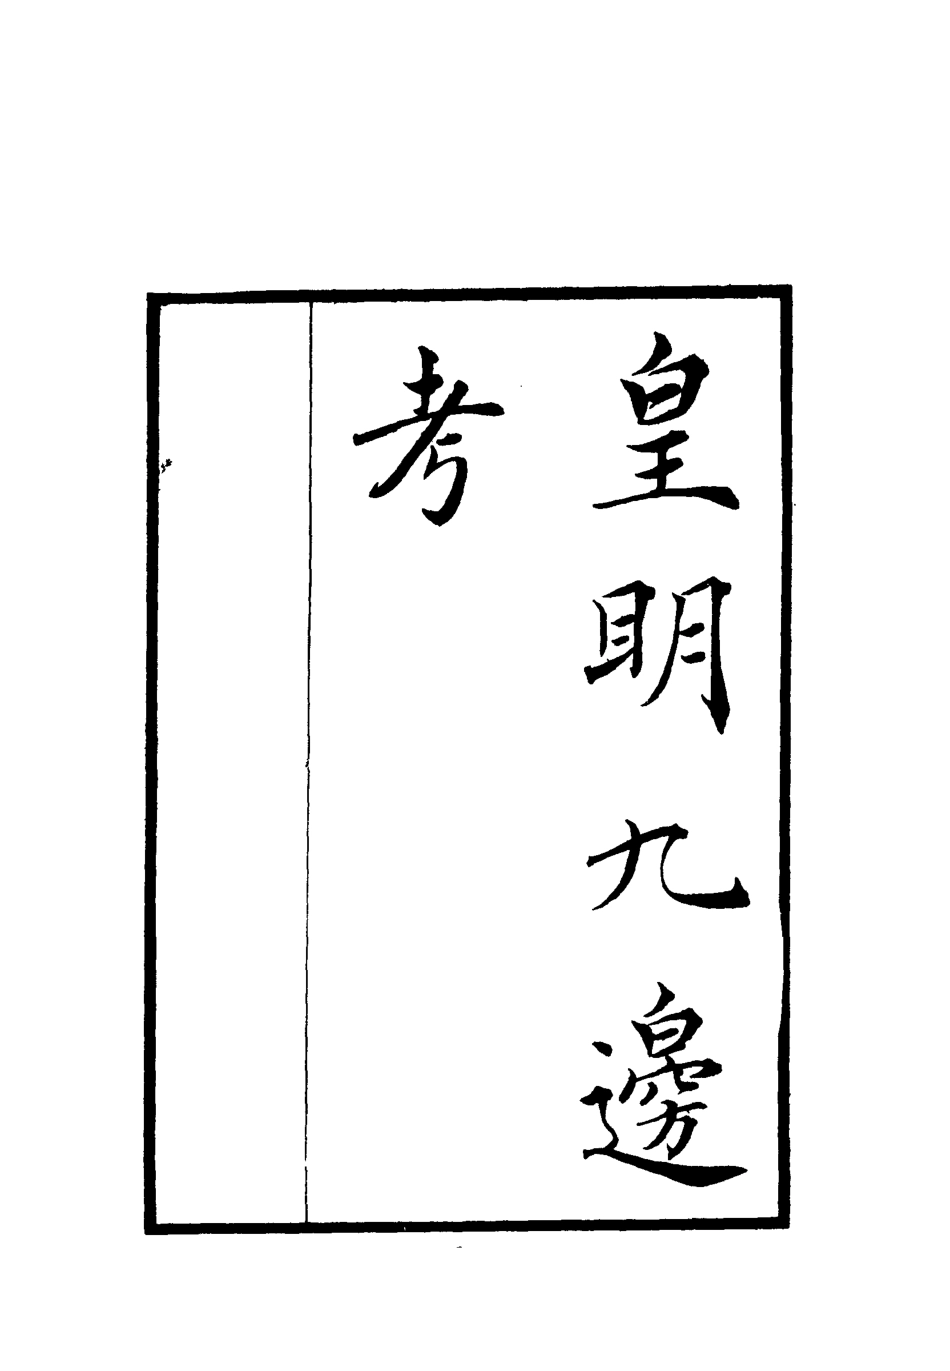 皇明九邊
考